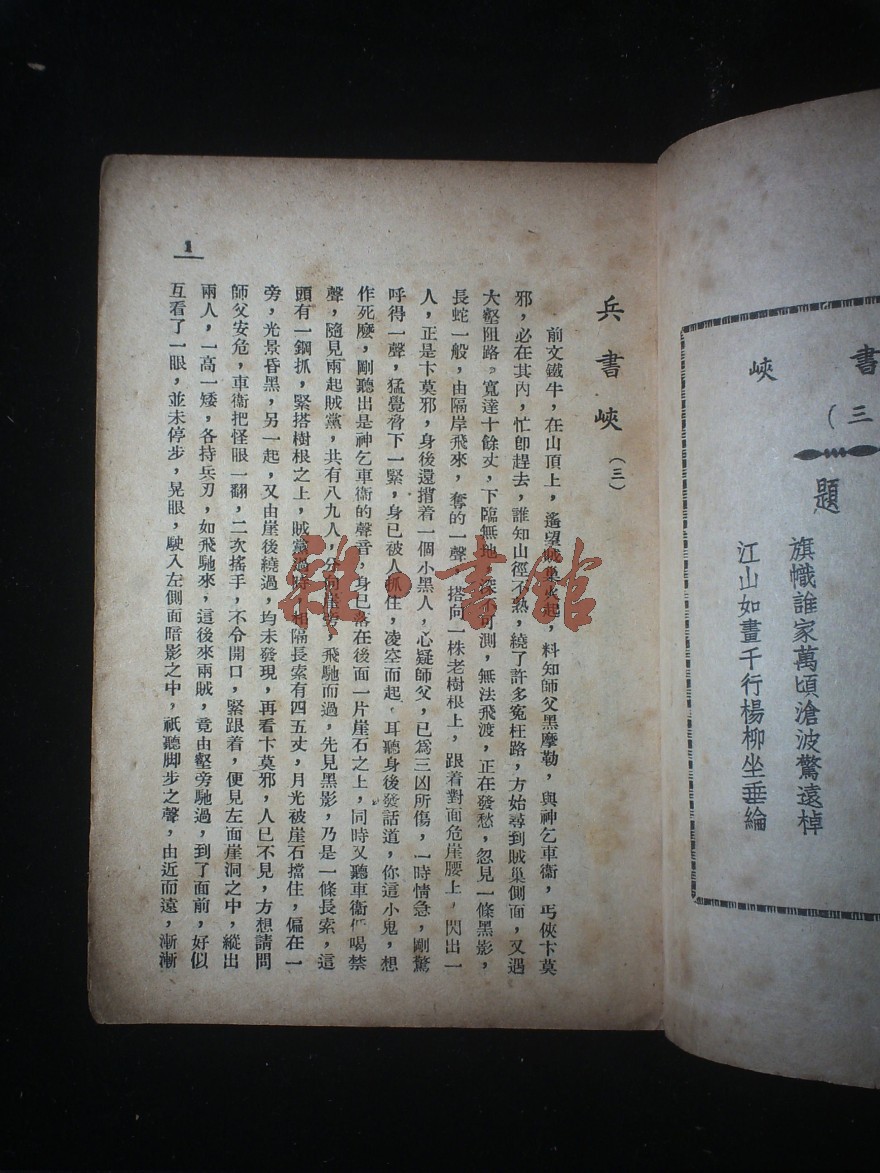 書
峽
三（
題
旗幟誰家萬頃滄波驚遠棹
江山如畫千行楊柳坐垂綸
兵書峽（三）
前文鐵牛，在山頂上，遙望賊巢火起，料知師父黑摩勒，與神乞車衞，丐俠卞莫
邪，必在其內，忙卽趕去，誰知山徑不熟，繞了許多寃枉路，方始尋到賊巢側面，又遇
大壑阻路。寬達十餘丈，下臨無地，深不可測，無法飛渡，正在發愁，忽見一條黑影，
長蛇一般，由隔岸飛來，奪的一聲，搭向一株老樹根上，跟着對面危崖腰上，閃出一
人，正是卞莫邪，身後還揹着一個小黑人，心疑師父，已爲三凶所傷，一時情急，剛驚
呼得一聲，猛覺脅下一緊，身已被人抓住，凌空而起，耳聽身後發話道，你這小鬼，想
作死麽，剛聽出是神乞車衞的聲音，身已落在後面一片崖石之上，同時又聽車衞低喝禁
聲，隨見兩起賊黨，共有八九人，分向崖旁，飛馳而過，先見黑影，乃是一條長索，這
頭有一鋼抓，緊搭樹根之上，賊黨過時，相隔長索有四五丈，月光被崖石擋住，偏在一
旁，光景昏黑，另一起，又由崖後繞過，均未發現，再看卞莫邪，人已不見，方想請問
師父安危，車衞把怪眼一翻，二次搖手，不令開口，緊跟着，便見左面崖洞之中，縱出
兩人，一高一矮，各持兵刃，如飛馳來，這後來兩賊，竟由壑旁馳過，到了面前，好似
互看了一眼，並未停步，晃眼，駛入左側面暗影之中，祇聽脚步之聲，由近而遠，漸漸
1
雜·書館